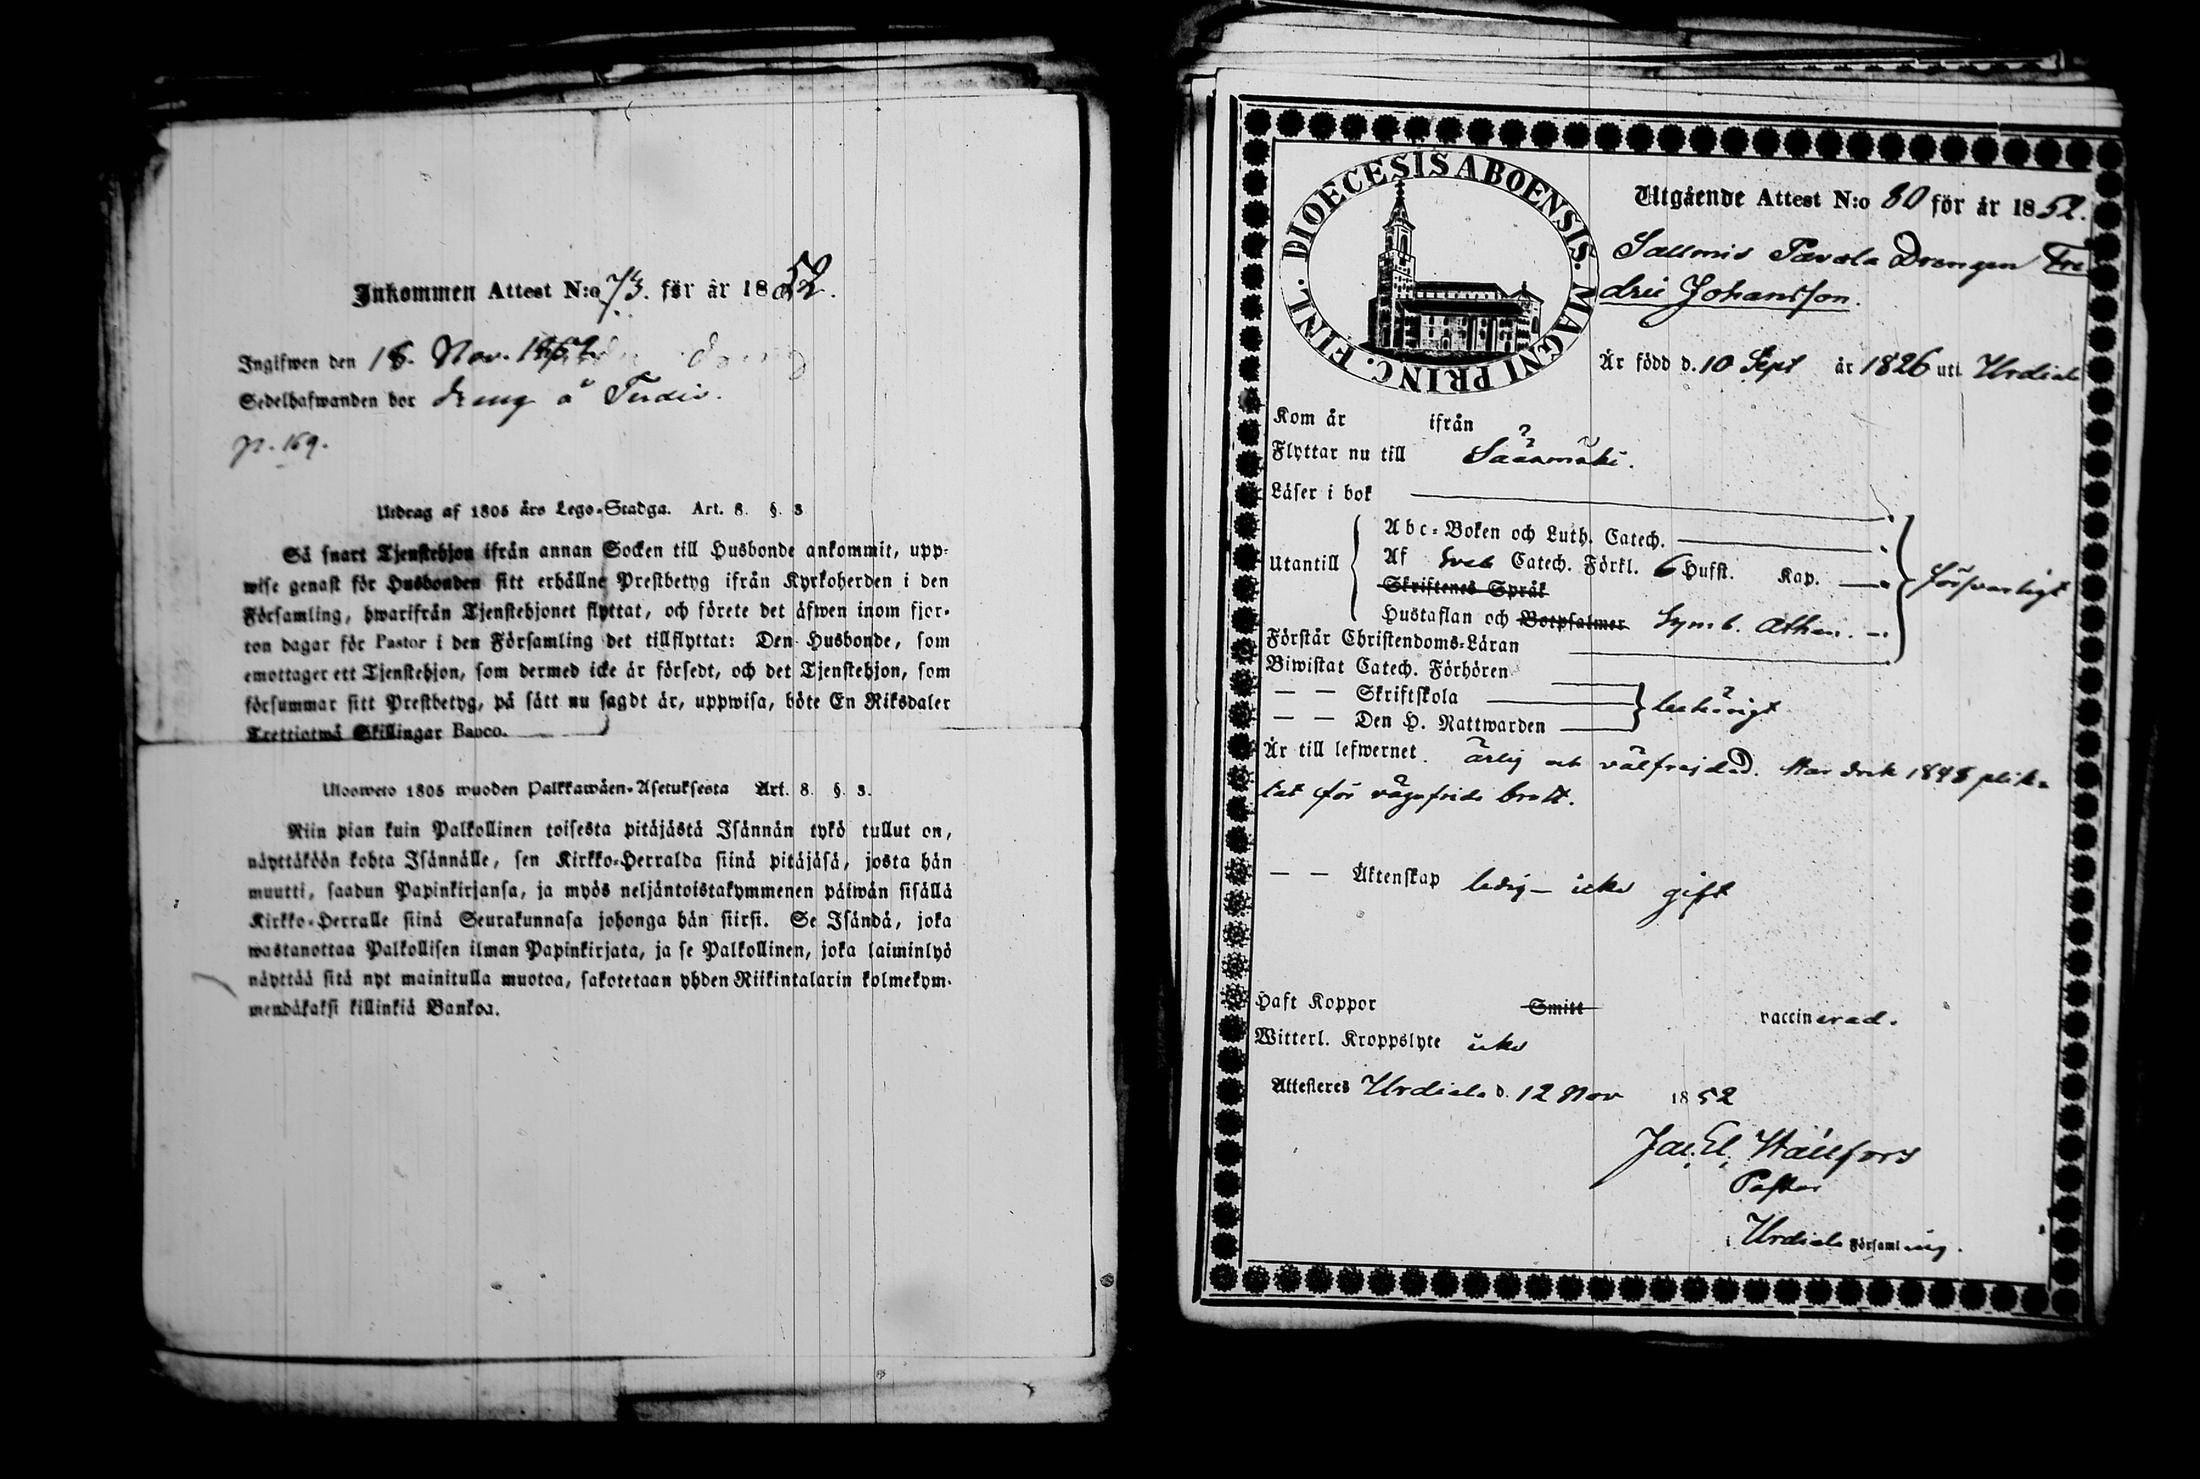 Inkommen Attest N:o 73. för år 1852.
Ingifwen den 18. Nov. 1852
Sedelhafwanden bor dreng å
p. 169.
Utdrag af 1805 års Lego-Stadga. Art. 8. §. 3
Så snart Tjenstehjon ifrån annan Socken till Husbonde ankommit, upp-
wise genast för Husbonden sitt erhållne Prestbetyg ifrån Kyrkoherden i den
Församling, hwarifrån Tjenstehjonet flyttat, och förete det äfwen inom fjor-
ton dagar för Pastor i den Församling det tillflyttat: Den Husbonde, som
emottager ett Tjenstehjon, som dermed icke är försedt, och det Tjenstehjon, som
försummar sitt Prestbetyg, på sätt nu sagdt är, uppwisa, böte En Riksdaler
Trettiotwå Skillingar Banco.
Ulosweto 1805 wuoden Palkkawäen-Asetuksesta Art. 8. §. 3.
Niin pian kuin Palkollinen toisesta pitäjästä Isännän tykö tullut on,
näyttäköön kohta Isännälle, sen Kirkko-Herralda siinä pitäjäsä, josta hän
muutti, saadun Papinkirjansa, ja myös neljäntoistakymmenen päiwän sisällä
Kirkko-Herralle siinä Seurakunnasa johonga hän siirsi. Se Isändä, joka
wastanottaa Palkollisen ilman Papinkirjata, ja se Palkollinen, joka laiminlyö
näyttää sitä nyt mainitulla muotoa, sakotetaan yhden Riikintalarin kolmekym-
mendäkaksi killinkiä Bankoa.
DIOECESIS ABOENSIS. MAGNI PRINC. FINL.
Utgående Attest N:o 80 för år 1852.
Drengen Fre
dric Johansson.
Är född d. 10 Sept år 1826 uti Urdiala
Kom år ifrån
Flyttar nu till Sääxmäki.
Läser i bok
Abc-Boken och Luth. Catech.
Utantill Af Sveb Catech. Förkl. 6 Hufst. Kap. försvarligt
Skriftenes Språk
Hustaflan och Botpsalmer Symb. Athan.
Förstår Christendoms-Läran
Biwistat Catech. Förhören
— — Skriftskola behörigt
— — Den H. Nattwarden
Är till lefwernet ärlig och välfrejdad. Har dock 1848 plik-
tat för vägafrids brott.
— — Äktenskap ledig – icke gift
Haft Koppor Smitt vaccinerad.
Witterl. Kroppslyte icke
Attesteres Urdiala d. 12 Nov 1852
Jac. El. Hällfors
Pastor
i Urdiala Församling.